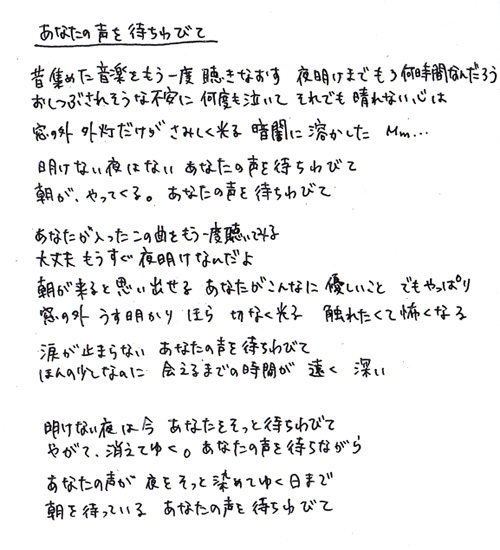 あなたの声を待ちわびて
昔集めた音楽をもう一度 聴きなおす 夜明けまでもう何時間なんだろう
おしつぶされそうな不安に 何度も泣いて それでも晴れない心は
窓の外 外灯だけが さみしく光る 暗闇に溶かした Mm...
明けない夜はない あなたの声を待ちわびて
朝が、やってくる。 あなたの声を待ちわびて
あなたが入ったこの曲をもう一度聴いてみる
大丈夫 もうすぐ 夜明けなんだよ
朝が来ると思い出せる あなたがこんなに 優しいこと でもやっぱり
窓の外 うす明かり ほら 切なく光る 触れたくて怖くなる
涙が止まらない あなたの声を待ちわびて
ほんの少しなのに 会えるまでの時間が 遠く 深い
明けない夜は今 あなたをそっと待ちわびて
やがて、消えてゆく。 あなたの声を待ちながら
あなたの声が 夜をそっと染めてゆく日まで
朝を待っている あなたの声を待ちわびて